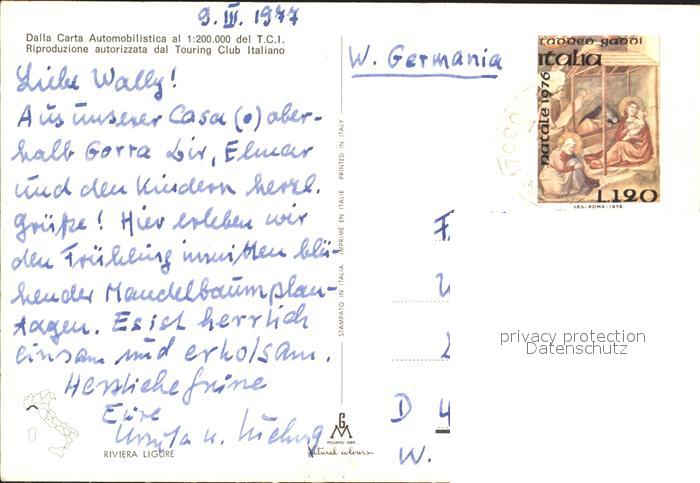 9. III. 1977
Dalla Carta Automobilistica al 1:200.000 del T.C.I.
Riproduzione autorizzata dal Touring Club Italiano
Liebe Wally!
Aus unserer Casa (•) ober-
halb Gorra Dir, Elmar
und den Kindern herzl.
Grüße! Hier erleben wir
den Frühling inmitten blü-
hender Mandelbaumplan-
tagen. Es ist herrlich
einsam und erholsam.
Herzliche Grüsse
Eure
u.
RIVIERA LIGURE
STAMPATO IN ITALIA IMPRIMÉ EN ITALIE PRINTED IN ITALY
GM
MILANO. DEP.
Natural colours
W. Germania
taddeo gaddi
italia
natale 1976
L.120
I.P.S.-ROMA-1976
17020
privacy protection
Datenschutz
D 4
W.